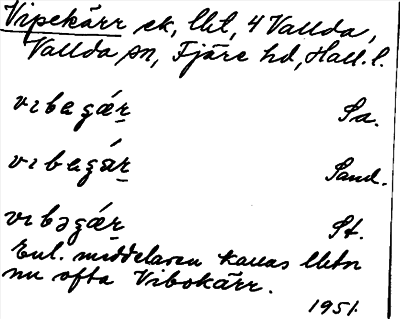 Vipekärr ek, lht, 4 Vallda,
Vallda sn, Fjäre hd, Hall. l.
vɪbegǽr Sa.
vɪbegár Sand.
vɪbəgǽr St.
Enl. meddelaren kallas lhtn
nu ofta Vibokärr.
1951.